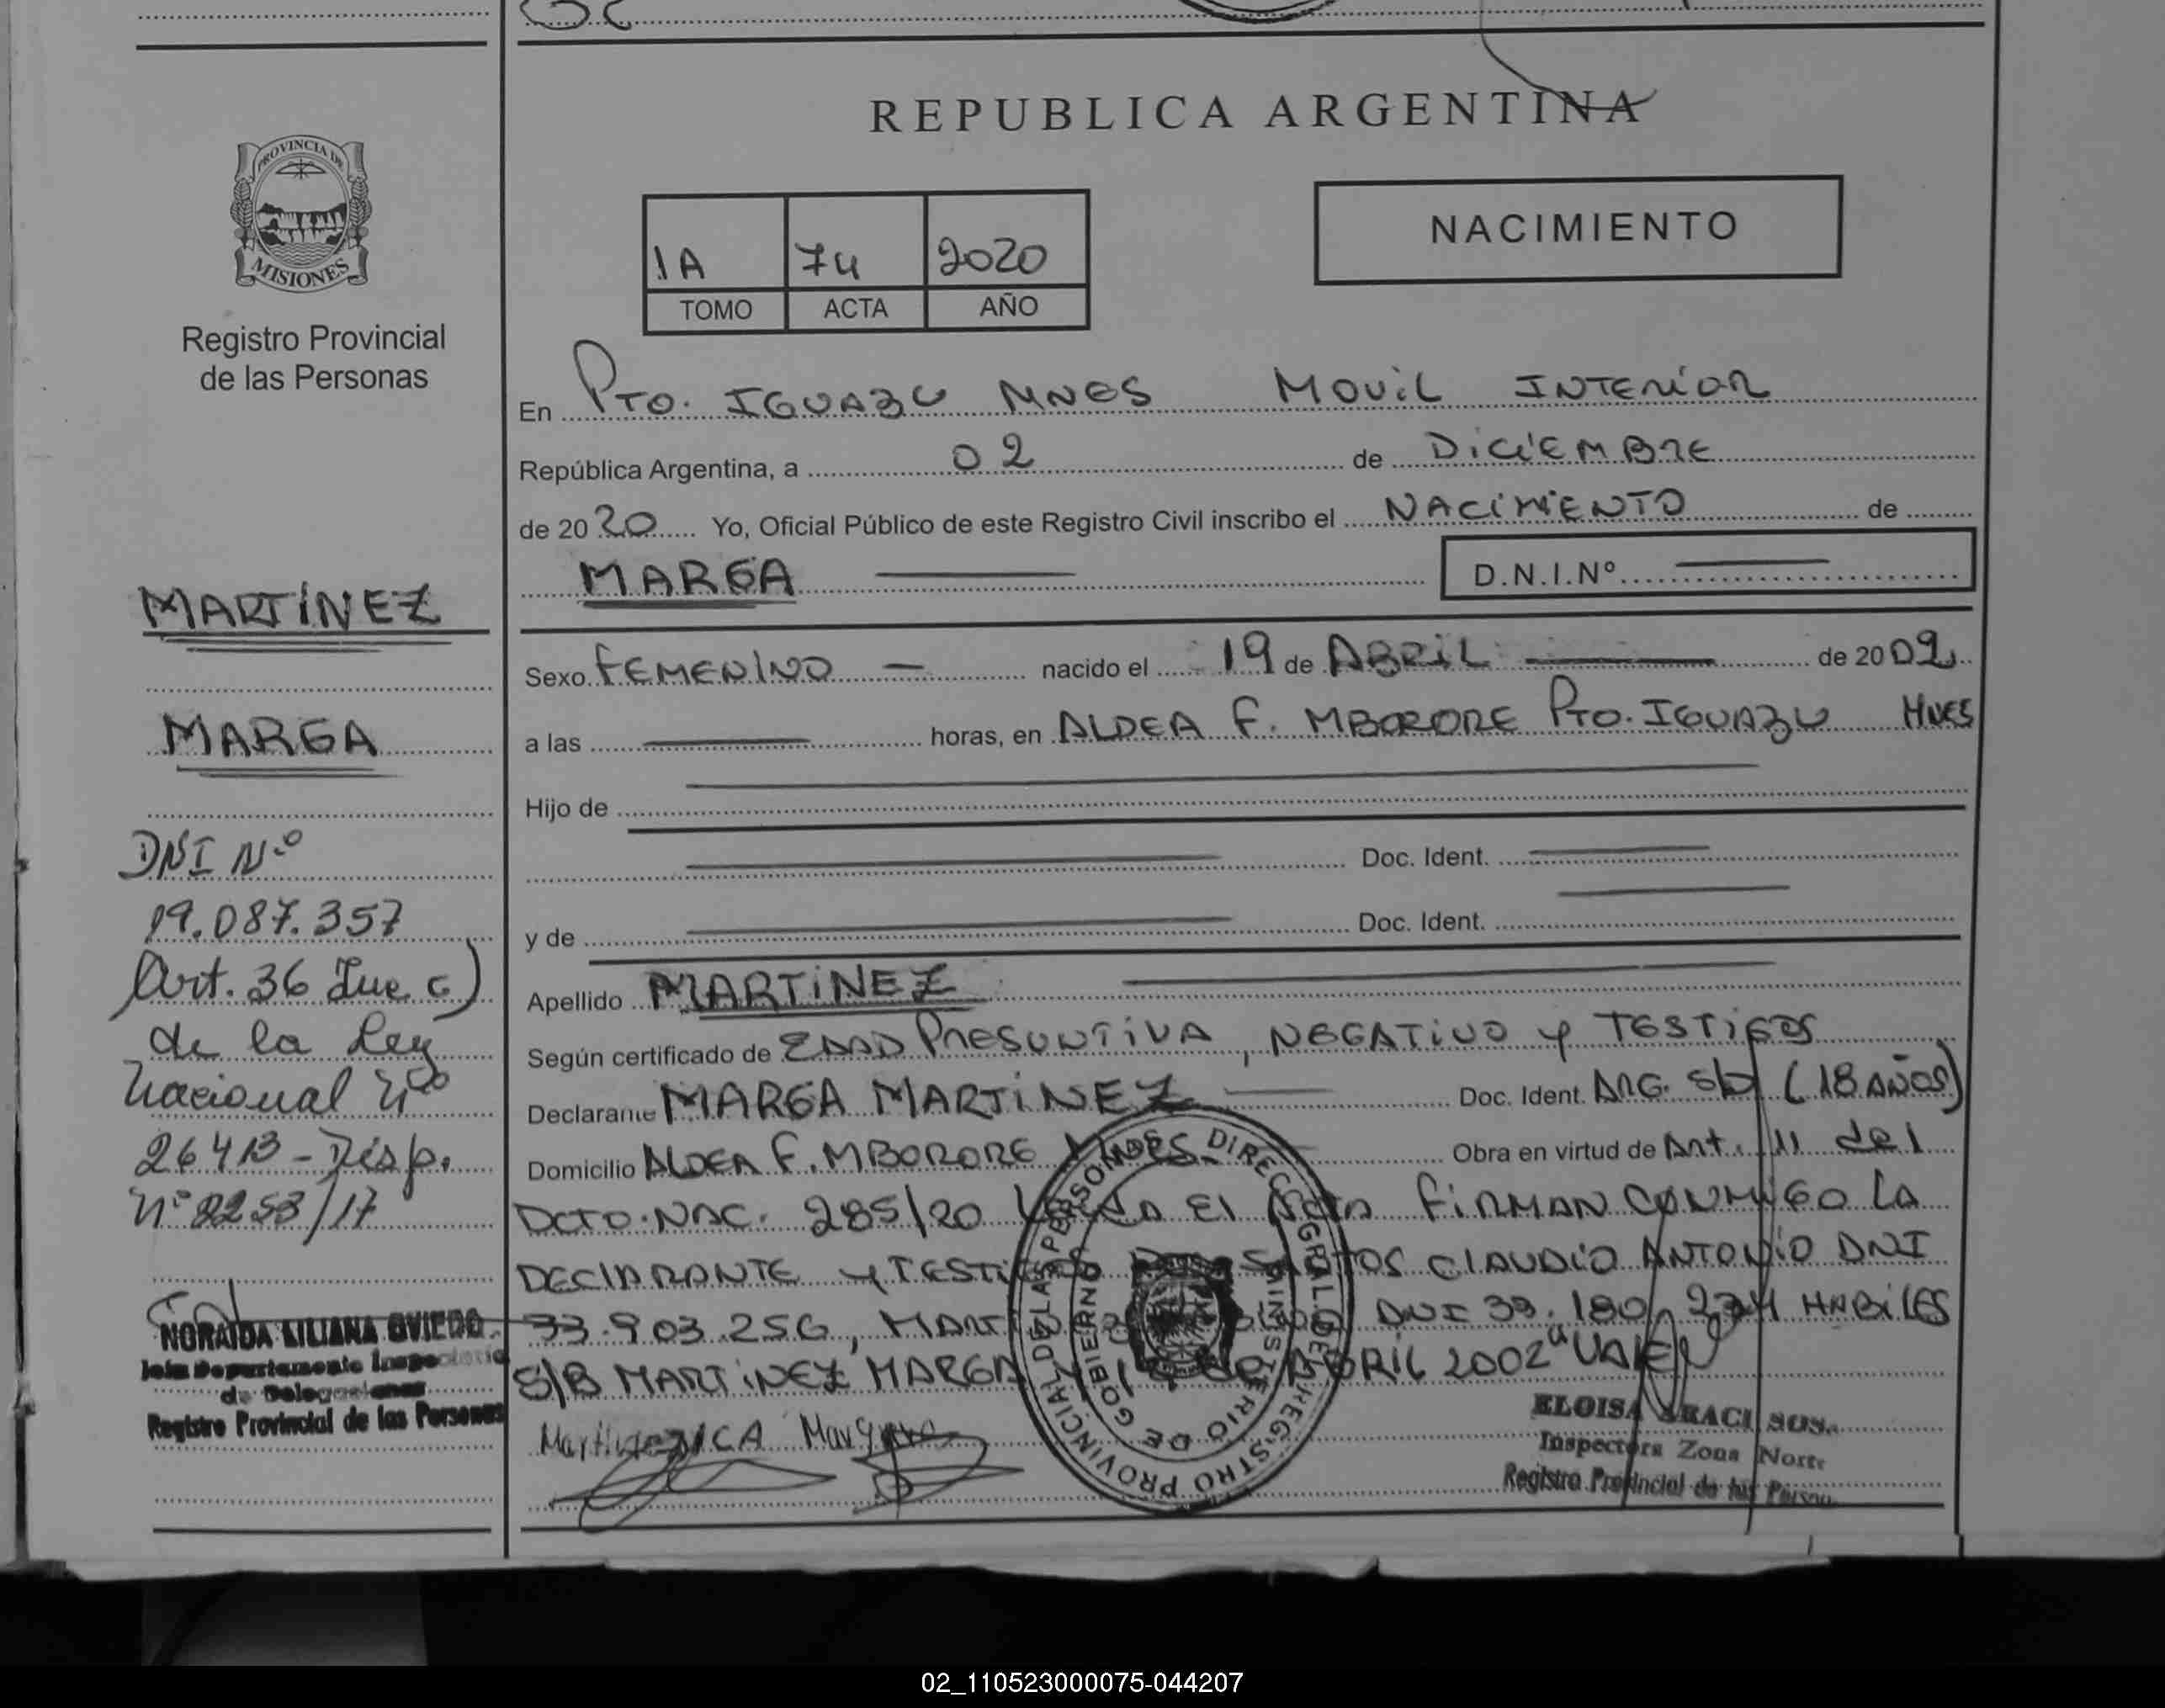 REPUBLICA ARGENTINA
PROVINCIA DE
MISIONES
Registro Provincial
de las Personas
NACIMIENTO
1A 74 2020
TOMO ACTA AÑO
En Pto. IGUAZU MNES MOVIL INTERIOR
República Argentina, a 02 de DICIEMBRE
de 2020 Yo, Oficial Público de este Registro Civil inscribo el NACIMIENTO de
MARGA D.N.I.Nº
MARTÍNEZ
MARGA
DNI Nº
19.087.357
(Art. 36 Inc c)
de la Ley
Nacional Nº
26413 - Disp.
Nº 2253/17
NORAIDA LILIANA OVIEDO
Jefa Departamento
de Delegaciones
Registro Provincial de las Personas
Sexo FEMENINO nacido el 19 de ABRIL de 2002
a las horas, en ALDEA F. MBORORE PTO. IGUAZU MNES
Hijo de
Doc. Ident.
y de Doc. Ident.
Apellido MARTÍNEZ
Según certificado de EDAD PRESUNTIVA, NEGATIVO y TESTIGOS
Declarante MARGA MARTÍNEZ Doc. Ident. ARG. S/D (18 AÑOS)
Domicilio ALDEA F. MBORORE MNES Obra en virtud de Art. 11 del
DCTO. NAC. 285/20 El Acta FIRMAN CONMIGO LA
DECLARANTE y CLAUDIO ANTONIO DNI
33.903.256, DNI 39.180.274 HABILES
S/B MARTÍNEZ MARGA ABRIL 2002 VALEN
DIRECC. GRAL. DEL REGISTRO PROVINCIAL DE LAS PERSONAS
MINISTERIO DE GOBIERNO
ELOISA ARACI SOSA
Inspectora Zona Norte
Registro Provincial de las Person
02_110523000075-044207